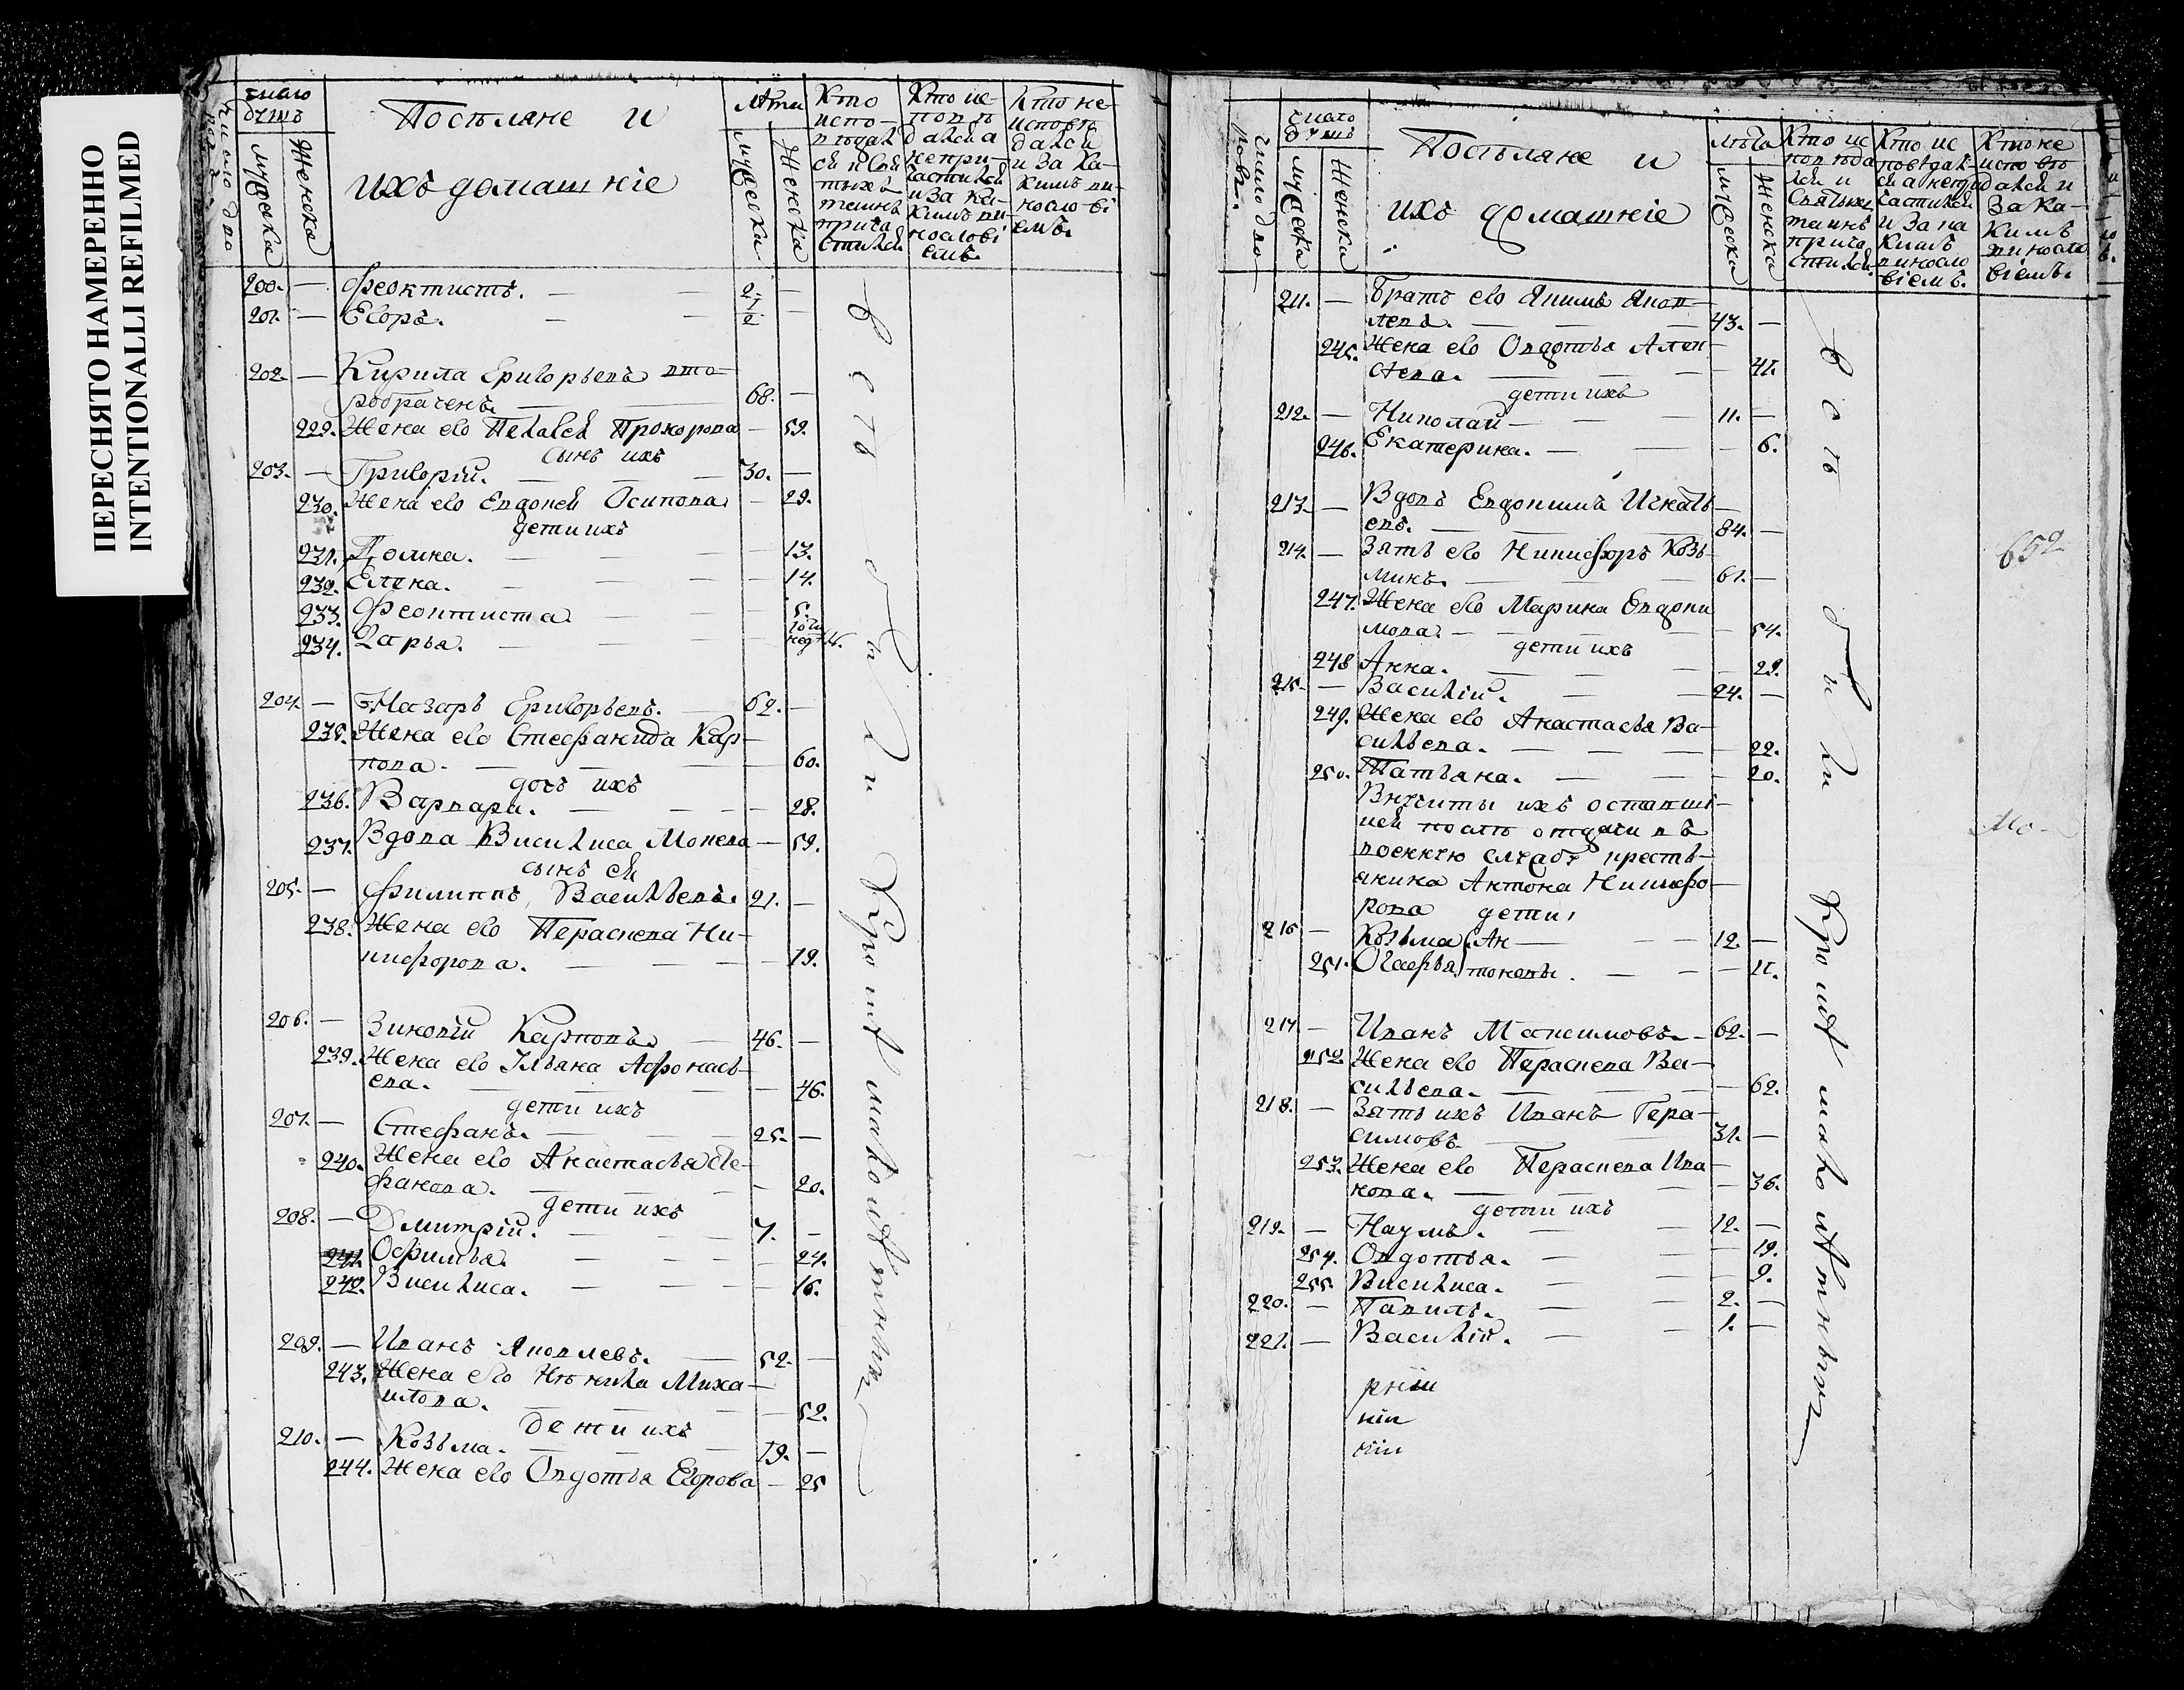 ПЕРЕСНЯТО НАМЕРЕННО
INTENTIONALLI REFILMED
число
душъ
мужеска
женска
Посѣляне и
ихъ домашніе
лѣта
мужеска
женска
Кто
испо-
вѣдал
ся и свя
тыхъ
таинъ
прича
стился
Кто ис-
повѣ
дался а
непри-
частился
и за ка-
кимъ ви-
нословi
емъ.
Кто не
исповѣ
дался
и за ка-
кимъ ви-
нословi
емъ.
200. — Феоктистъ. — — 2. —
201. — Егоръ. — — 1/2 —
202. — Кирила Григорьевъ вто-
робраченъ. — 68. —
229. Жена его Пелагея Прохорова — 59.
сынъ ихъ
203. — Григорій. — — 30. —
230. Жена его Евдокея Осипова — 29.
дети ихъ
231. Домна. — — 13.
232. Елена. — — 14.
233. Феоктиста — — 5.
234. Дарья. — —
204. — Назаръ Григорьевъ. — 62. —
235. Жена его Стефанида Кар-
пова. — — 60.
дочь ихъ
236. Варвара. — — 28.
237. Вдова Василиса Мокева — 59.
сынъ ея
205. — Филиппъ Васильевъ. 21. —
238. Жена его Параскева Ни-
кифорова. — — 19.
206. — Зиновій Карповъ — 46. —
239. Жена его Ульяна Афонась-
ева. — — 46.
дети ихъ
207. — Стефанъ. — — 25. —
240. Жена его Анастасья Сте-
фанова. — — 20.
дети ихъ
208. — Дмитрій. — — 7. —
241. Офимья. — — 24.
242. Василиса. — — 16.
209. — Иванъ Яковлевъ. — 52. —
243. Жена его Ненила Миха-
илова. — 52.
дети ихъ
210. — Козьма. — — 19. —
244. Жена его Овдотья Егорова — 25
всѣ были Кромѣ малолѣтныхъ
число
душъ
мужеска
женска
Посѣляне и
ихъ домашніе
лѣта
мужеска
женска
Кто ис
повѣда
лся и
святыхъ
таинъ
прича
стился.
Кто ис
повѣдал-
ся а непри
частился
и за ка
кимъ
виносло
віемъ.
Кто не
исповѣ
дался и
за ка-
кимъ
виносло
віемъ.
211. — Братъ его Якимъ Яков-
левъ. — — 43. —
245. Жена его Овдотья Алек-
сеева. — — 41.
дети ихъ
212. — Николай — — 11. —
246. Екатерина. — — 6.
213. — Вдовъ Евдокимъ Игнать-
евъ. — — 84. —
214. — Зять его Никифоръ Козь-
минъ. — — 61. —
247. Жена его Марина Евдоки
мова. — — 54.
дети ихъ
248 Анна. — — 29.
215. — Василій. — — 24. —
249. Жена его Анастасья Ва-
сильева. — — 22.
250. Татьяна. — — 20.
Внучиты ихъ оставши-
иея после отдачи въ
военную службу кресть-
янина Антона Никифо-
рова дети,
216 — Козьма Ан — — 12. —
251. Огафья тоновы. — — 11.
217 — Иванъ Максимовъ — 62. —
252 Жена его Параскева Ва-
сильева. — — 62.
218. — Зять ихъ Иванъ Гера-
симовъ — — 31. —
253. Жена его Параскева Ива
нова. — — 36.
дети ихъ
219. — Наумъ. — — 12. —
254. Овдотья. — — 19.
255. Василиса. — — 9.
220. — Павилъ. — — 2. —
221. — Василій. — — 1. —
всѣ были Кромѣ малолѣтныхъ
652